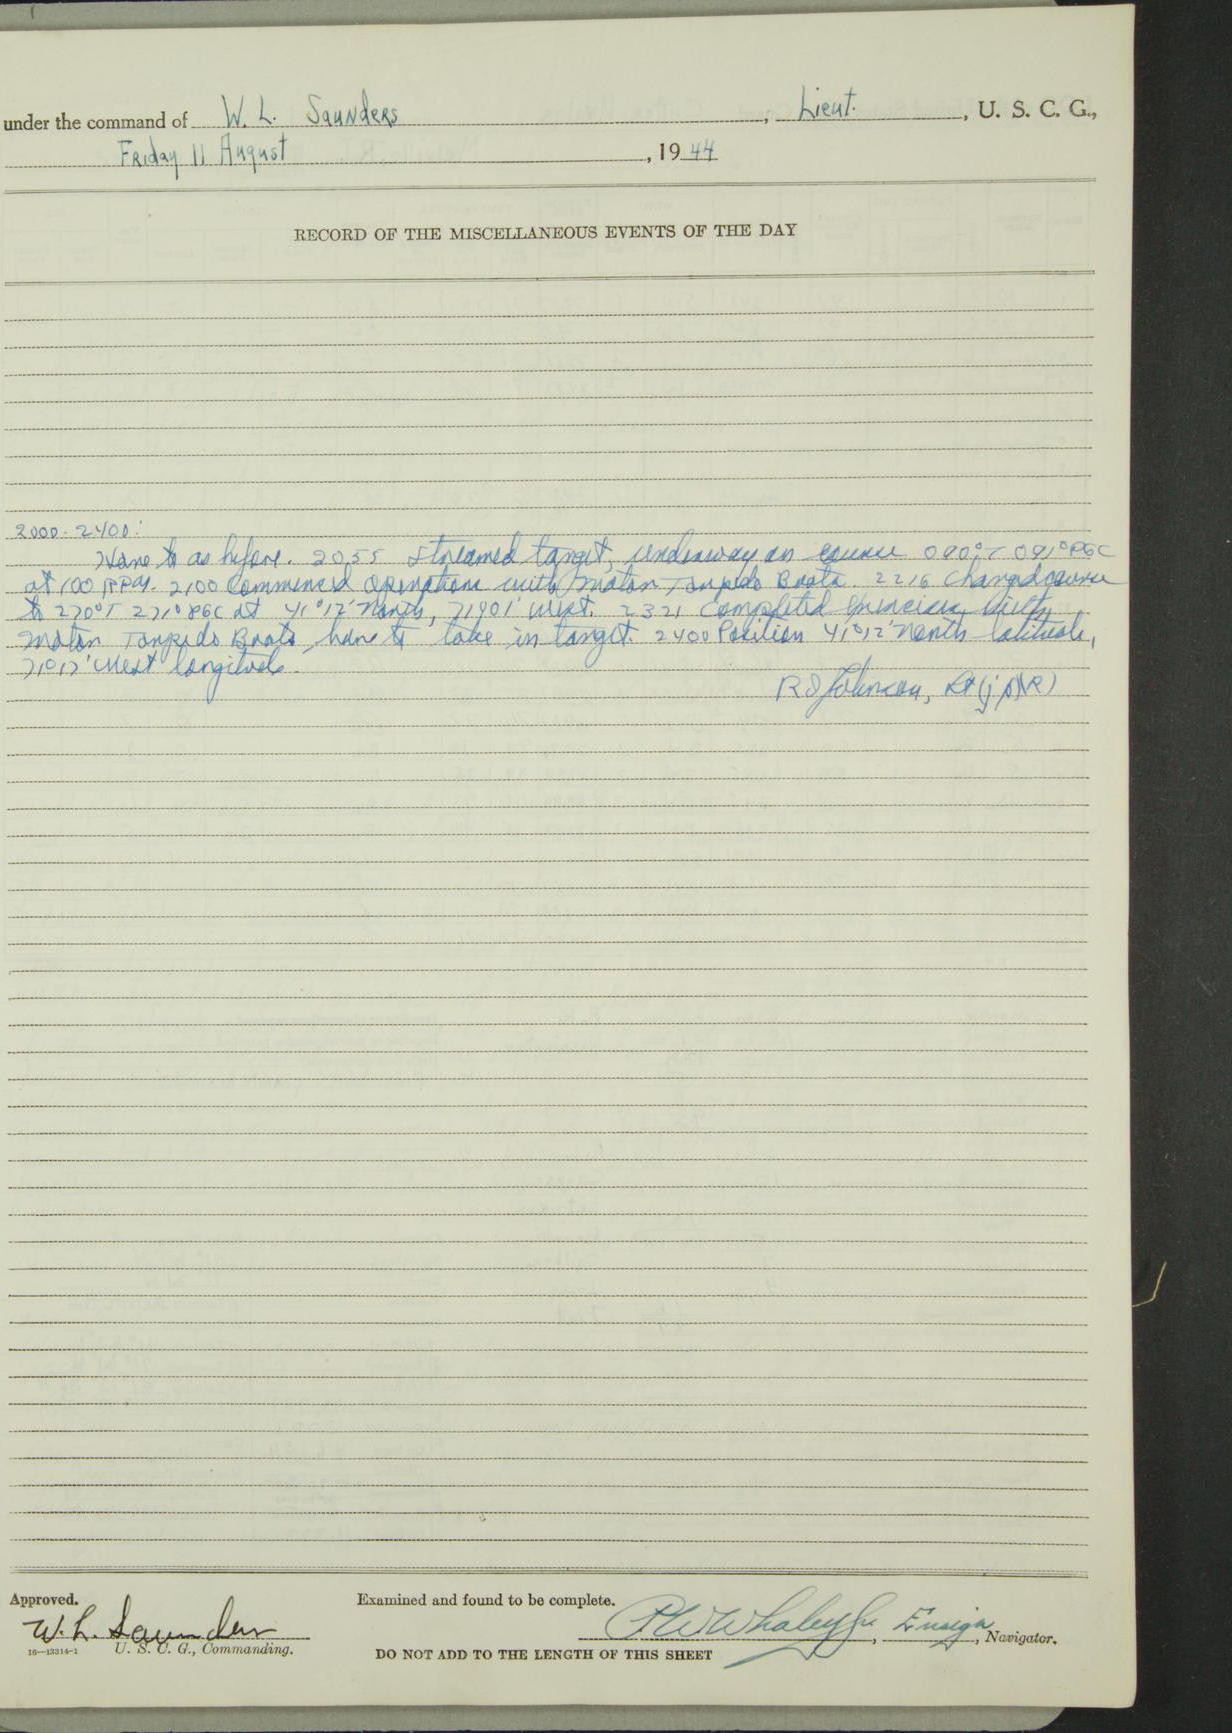 under the command of W. L. Saunders, Lieut., U. S. C. G.,
Friday 11 August, 1944
RECORD OF THE MISCELLANEOUS EVENTS OF THE DAY
2000-2400:
Hove to as before. 2055 Streamed target, underway on course 090°T 091°PGC
at 100 RPM. 2100 Commenced Operations with Motor Torpedo Boats. 2216 Changed course
to 270°T 271°PGC at 41°12' North, 71°01' West. 2321 Completed Exercises with
Motor Torpedo Boats, hove to take in target. 2400 Position 41°12' North latitude,
71°17' West longitude.
R S Johnson, Lt(jg)(R)
Approved.
Examined and found to be complete.
W. L. Saunders
P W Whaley Jr, Ensign, Navigator.
16—13314-1
U. S. C. G., Commanding.
DO NOT ADD TO THE LENGTH OF THIS SHEET